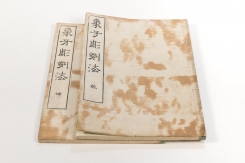 象牙彫刻法
乾
象牙彫刻法
坤